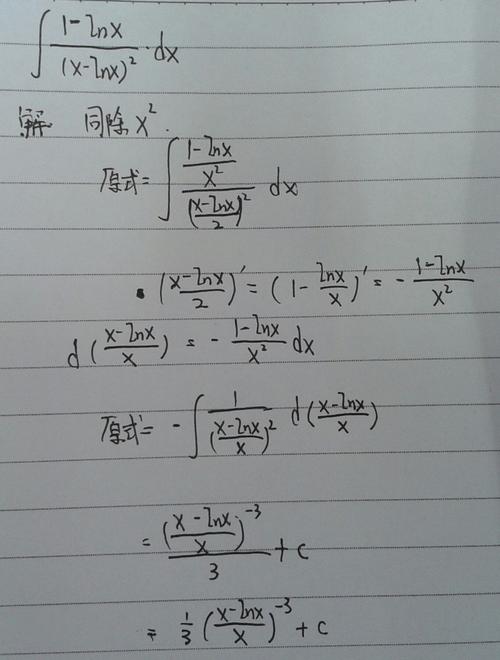 ∫ (1-lnx)/(x-lnx)² · dx
解 同除x².
原式= ∫ ((1-lnx)/x²)/((x-lnx)/2)² dx
· ((x-lnx)/2)' = (1 - lnx/x)' = - (1-lnx)/x²
d((x-lnx)/x) = - (1-lnx)/x² dx
原式= - ∫ 1/((x-lnx)/x)² d((x-lnx)/x)
= ((x-lnx)/x)⁻³/3 + c
= 1/3 ((x-lnx)/x)⁻³ + c